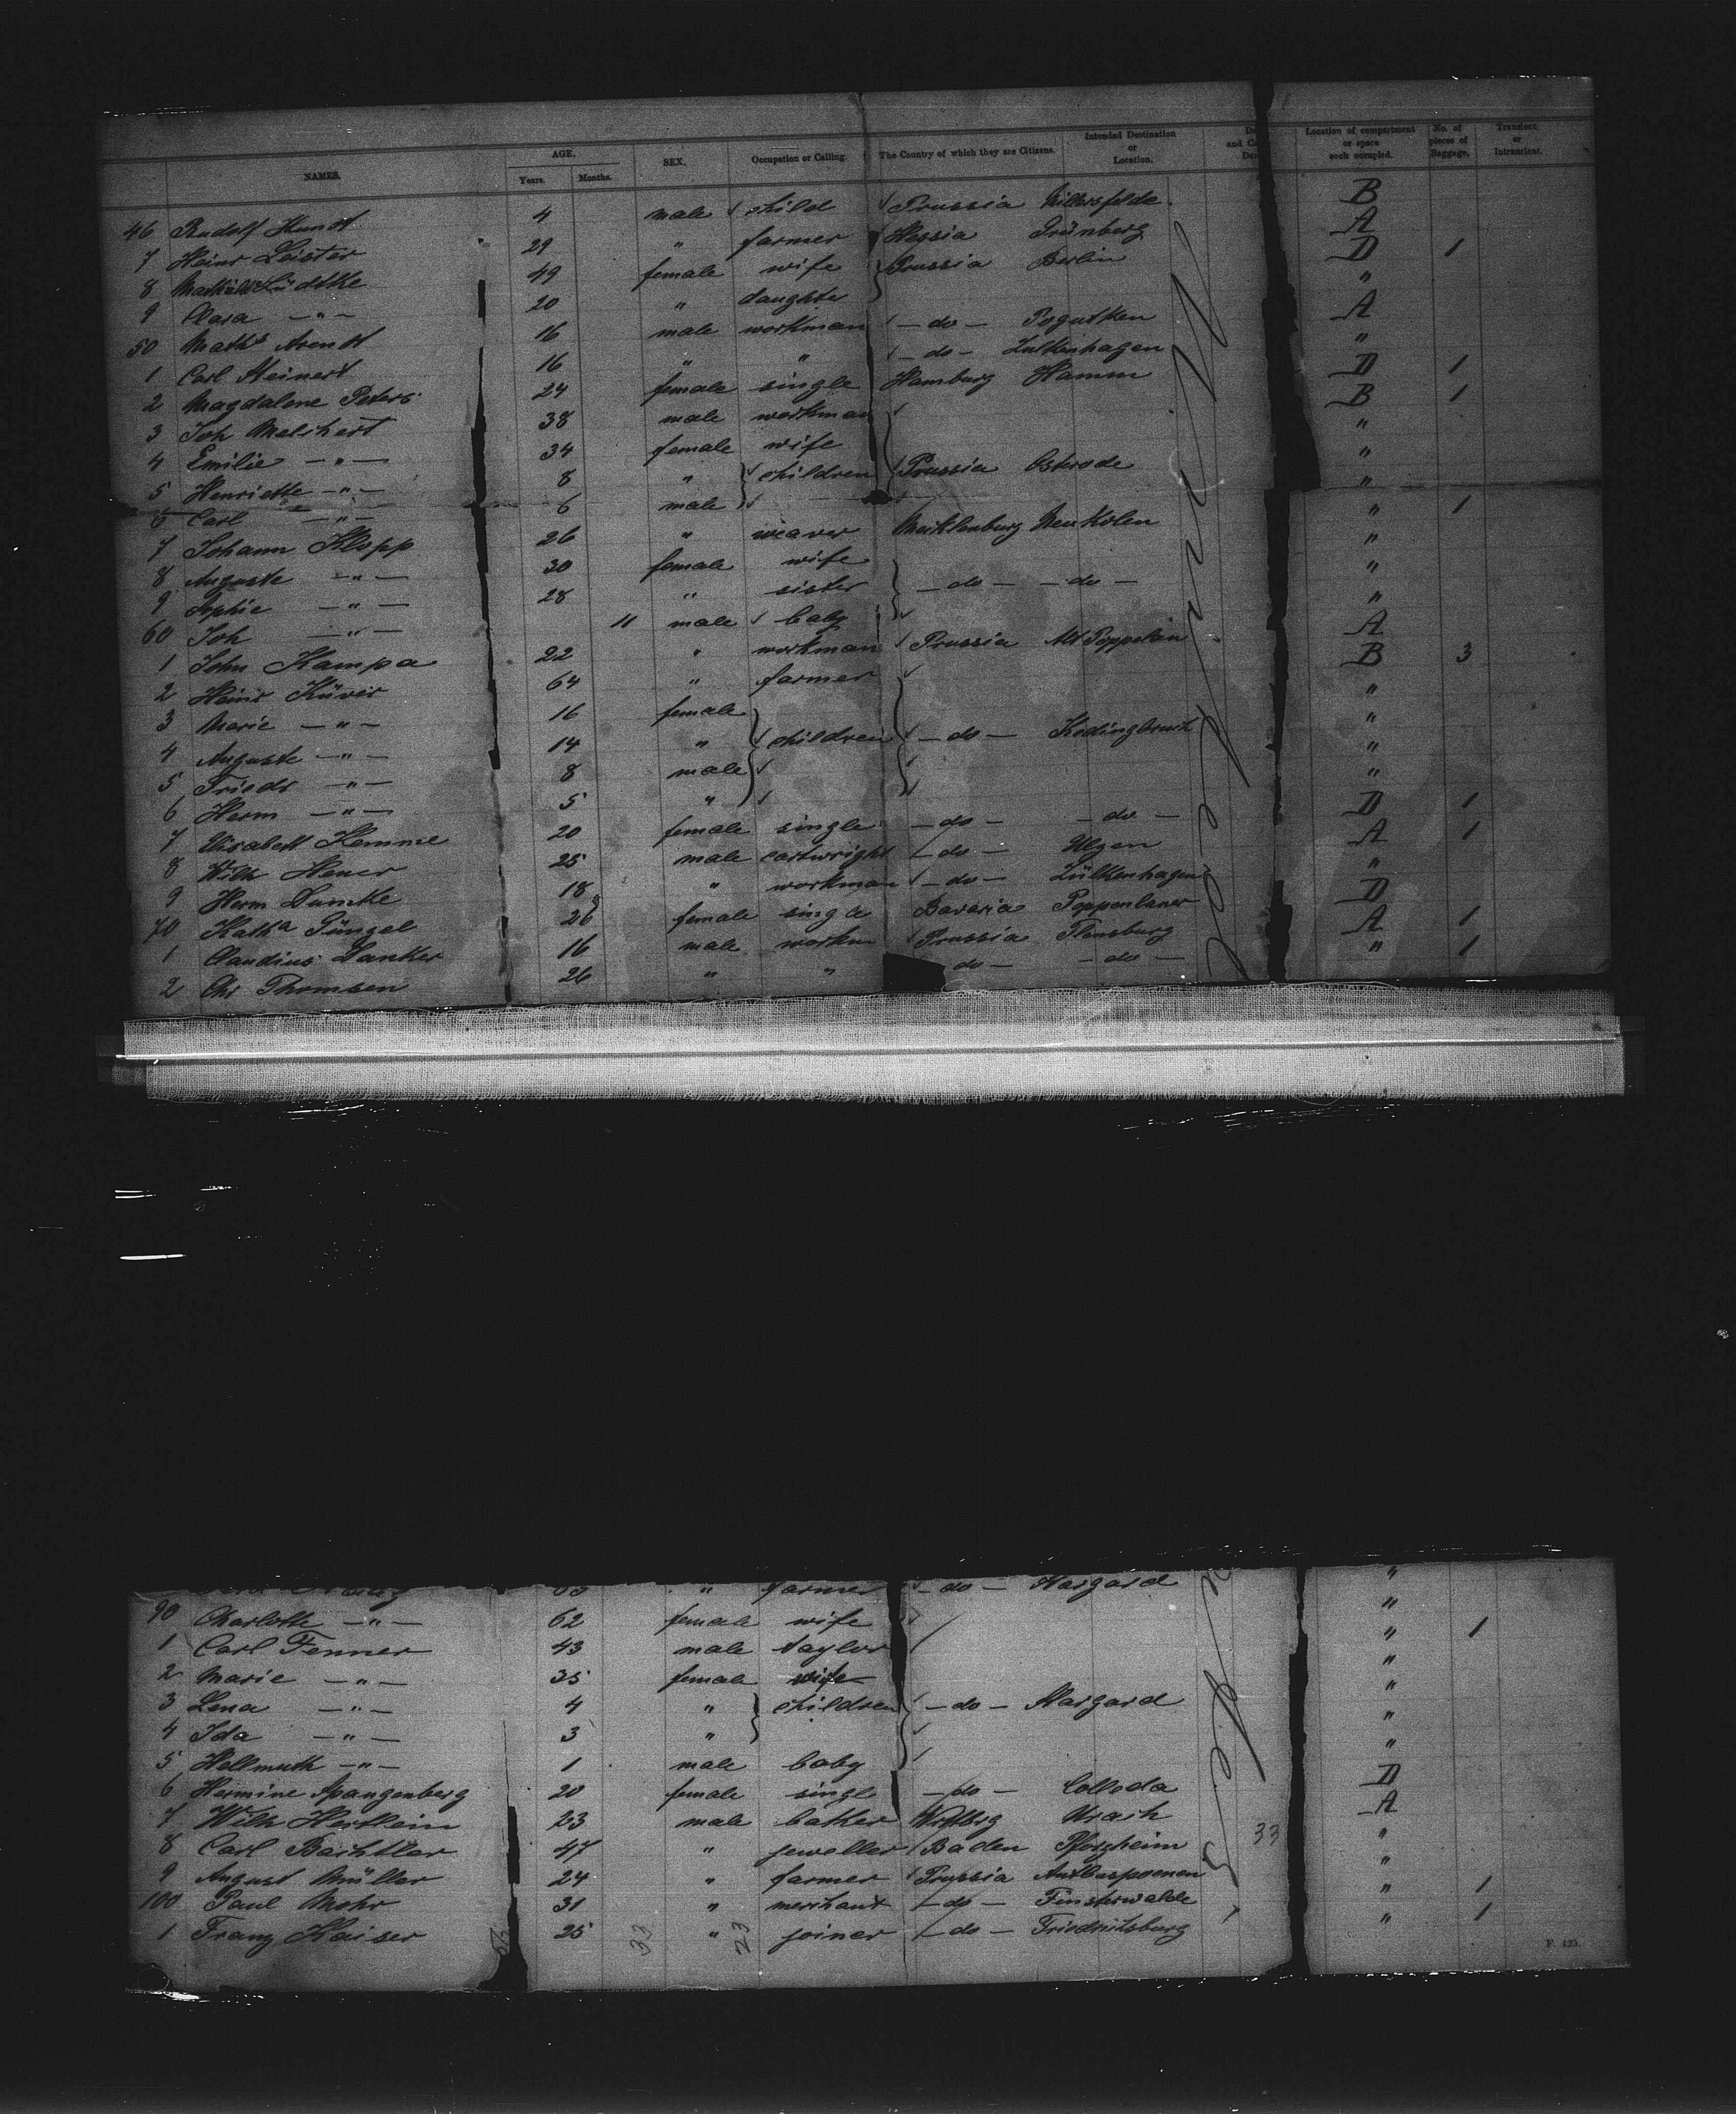 NAMES. AGE. Years. Months. SEX. Occupation or Calling. The Country of which they are Citizens. Intended Destination or Location. Location of compartment or space each occupied. No. of pieces of Baggage. Transient or Intransient.
46 Rudolf Hundt 4 male child Prussia Millersfelde B
7 Heinr Leister 29 " farmer Hessia Grünberg A
8 Mathilde Lüdtke 49 female wife Prussia Berlin D 1
9 Clara — " — 20 " daughter "
50 Maths Arendt 16 male workman — do — Pogutken A
1 Carl Steinert 16 " " — do — Zulkenhagen "
2 Magdalene Peters 24 female single Hamburg Hamm D 1
3 Joh Melchert 38 male workman B 1
4 Emilie — " — 34 female wife "
5 Henriette — " — 8 " children Prussia Osterode "
6 Carl — " — 6 male "
7 Johann Klopp 26 " weaver Mecklenburg Neu Kolen " 1
8 Auguste — " — 30 female wife "
9 Sophie — " — 28 " sister — do — — do — "
60 Joh — " — 11 male baby "
1 John Kampa 22 " workman Prussia Alt Poppelau A
2 Heinr Küver 64 " farmer B 3
3 Marie — " — 16 female "
4 Auguste — " — 14 " children — do — Kedingbruch "
5 Friedr — " — 8 male "
6 Herm — " — 5 " "
7 Elisabeth Hemme 20 female single — do — — do — D 1
8 Wilh Heuer 25 male cartwright — do — Ulzen A 1
9 Herm Dumke 18 " workman — do — Zülkenhagen "
70 Katha Güngel 26 female single Bavaria Poppenlauer D
1 Claudius Lanker 16 male workm Prussia Flensburg A 1
2 Chr Thomsen 26 " " do — — do — " 1
" farmer — do — Stargard "
90 Charlotte — " — 62 female wife "
1 Carl Fenner 43 male taylor " 1
2 Marie — " — 35 female wife "
3 Lena — " — 4 " children — do — Stargard "
4 Ida — " — 3 " "
5 Hellmuth — " — 1 male baby "
6 Hermine Spangenberg 20 female single — do — Colleda D
7 Wilh Hertlein 23 male baker Wrttbrg Urach A
8 Carl Bechtler 47 " jeweller Baden Pforzheim 33 "
9 August Müller 24 " farmer Prussia "
100 Paul Mohr 31 " merchant — do — Finsterwalde " 1
1 Franz Kaiser 25 33 " 23 joiner — do — Friedrichsburg " 1
F. 425.